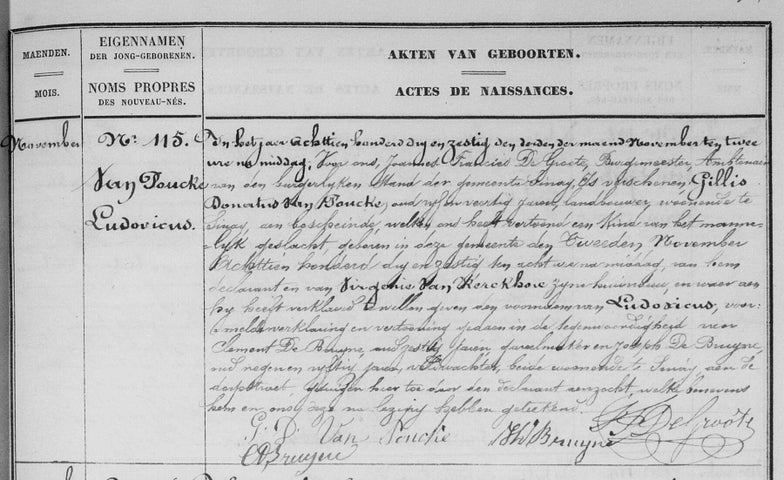 MAENDEN.
MOIS.
EIGENNAMEN
DER JONG-GEBORENEN.
NOMS PROPRES
DES NOUVEAU-NÉS.
AKTEN VAN GEBOORTEN.
ACTES DE NAISSANCES.
November
No: 115.
Van Poucke
Ludovicus.
In het jaer achttien honderd dry en zestig den derden der maend November ten twee
ure na middag, Voor ons, Joannes Francies De Groote, Burgemeester, Ambtenaer
van den burgerlyken stand der gemeente Sinay, Is verschenen, Gillis
Donatus Van Poucke, oud vyf en veertig jaren, landbouwer, woonende te
Sinay, aen welke ons heeft vertoond een kind van het manne-
lyk geslacht geboren in deze gemeente den Tweeden November
Achttien honderd dry en zestig ten acht ure na middag, van hem
declarant en van Virginie Van Kerckhove zyne huisvrouw, en waer aen
hy heeft verklaerd te willen geven den voornaem van Ludovicus, voor-
melde verklaring en vertooning gedaen in de tegenwoordigheid van
Clement De Bruyne, oud zestig jaren, en Joseph De Bruyne,
oud negen en vyftig jaren, veldwachter, beide woonende te Sinay, aen de
dorpstraet, getuigen hier toe door den declarant verzocht, welke benevens
hem en ons deze na lezing hebben geteekend.
G. D. Van Poucke
De Bruyne
De Groote
C D Bruyne